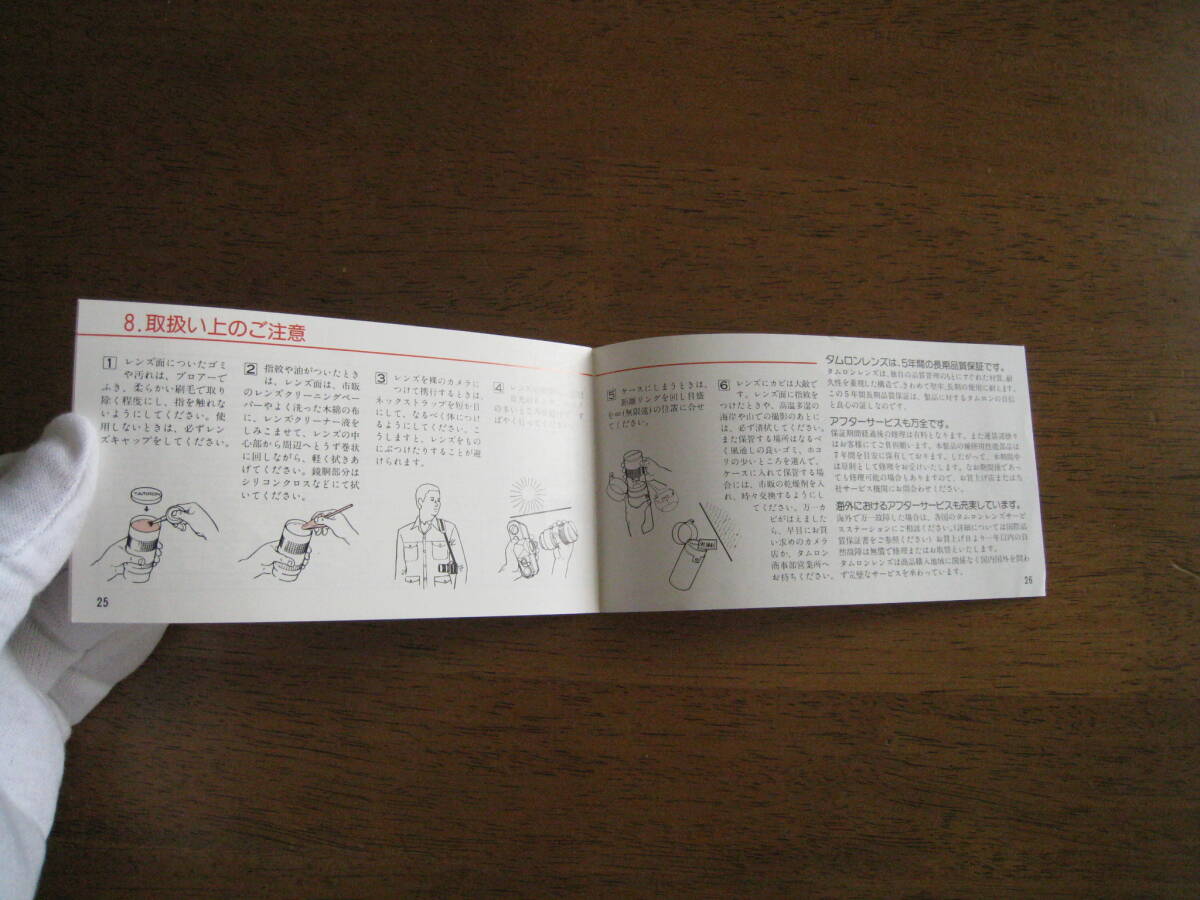 8.取扱い上のご注意
1 レンズ面についたゴミ
や汚れは、ブロアーで
ふき、柔らかい刷毛で取り
除く程度にし、指を触れな
いようにしてください。使
用しないときは、必ずレン
ズキャップをしてください。
TAMRON
2 指紋や油がついたとき
は、レンズ面は、市販
のレンズクリーニングペー
パーやよく洗った木綿の布
に、レンズクリーナー液を
しみこませて、レンズの中
心部から周辺へとうず巻状
に回しながら、軽く拭きあ
げてください。鏡胴部分は
シリコンクロスなどにて拭
いてください。
3 レンズを裸のカメラに
つけて携行するときは、
ネックストラップを短か目
にして、なるべく体につけ
るようにしてください。こ
うしますと、レンズをもの
にぶつけたりすることが避
けられます。
4
ばやく行ってください。
25
5 ケースにしまうときは、
距離リングを回し目盛
を∞(無限遠)の位置に合せ
てください。
6 レンズにカビは大敵で
す。レンズ面に指紋を
つけたときや、高温多湿の
海岸や山での撮影のあとに
は、必ず清拭してください。
また保管する場所はなるべ
く風通しの良いゴミ、ホコ
リの少いところを選んで、
ケースに入れて保管する場
合には、市販の乾燥剤を入
れ、時々交換するようにし
てください。万一カ
ビがはえましたら
、早目にお買
い求めのカメラ
店か、タムロン
商事部営業所へ
お持ちください。
タムロンレンズは、5年間の長期品質保証です。
タムロンレンズは、独自の品質管理のもとにすぐれた材質、耐
久性を重視した構造で、きわめて堅牢、長期の使用に耐します。
この5年間長期品質保証は、製品に対するタムロンの自信
と良心の証しなのです。
アフターサービスも万全です。
保証期間経過後の修理は有料となります。また運送諸掛り
はお客様にてご負担願います。本製品の補修用性能部品は
7年間を目安に保有しております。したがって、本期間中
は原則として修理をお受けいたします。なお期間後であっ
ても修理可能の場合もありますので、お買上げ店または当
社サービス機関にお問合わせください。
海外におけるアフターサービスも充実しています。
海外で万一故障した場合は、各国のタムロンレンズサービ
スステーションにご相談ください。(詳細については国際品
質保証書をご参照ください) お買上げ日より一年以内の自
然故障は無償で修理またはお取替えいたします。
タムロンレンズは商品購入地域に関係なく国内国外を問わ
ず完璧なサービスを承わっています。
26